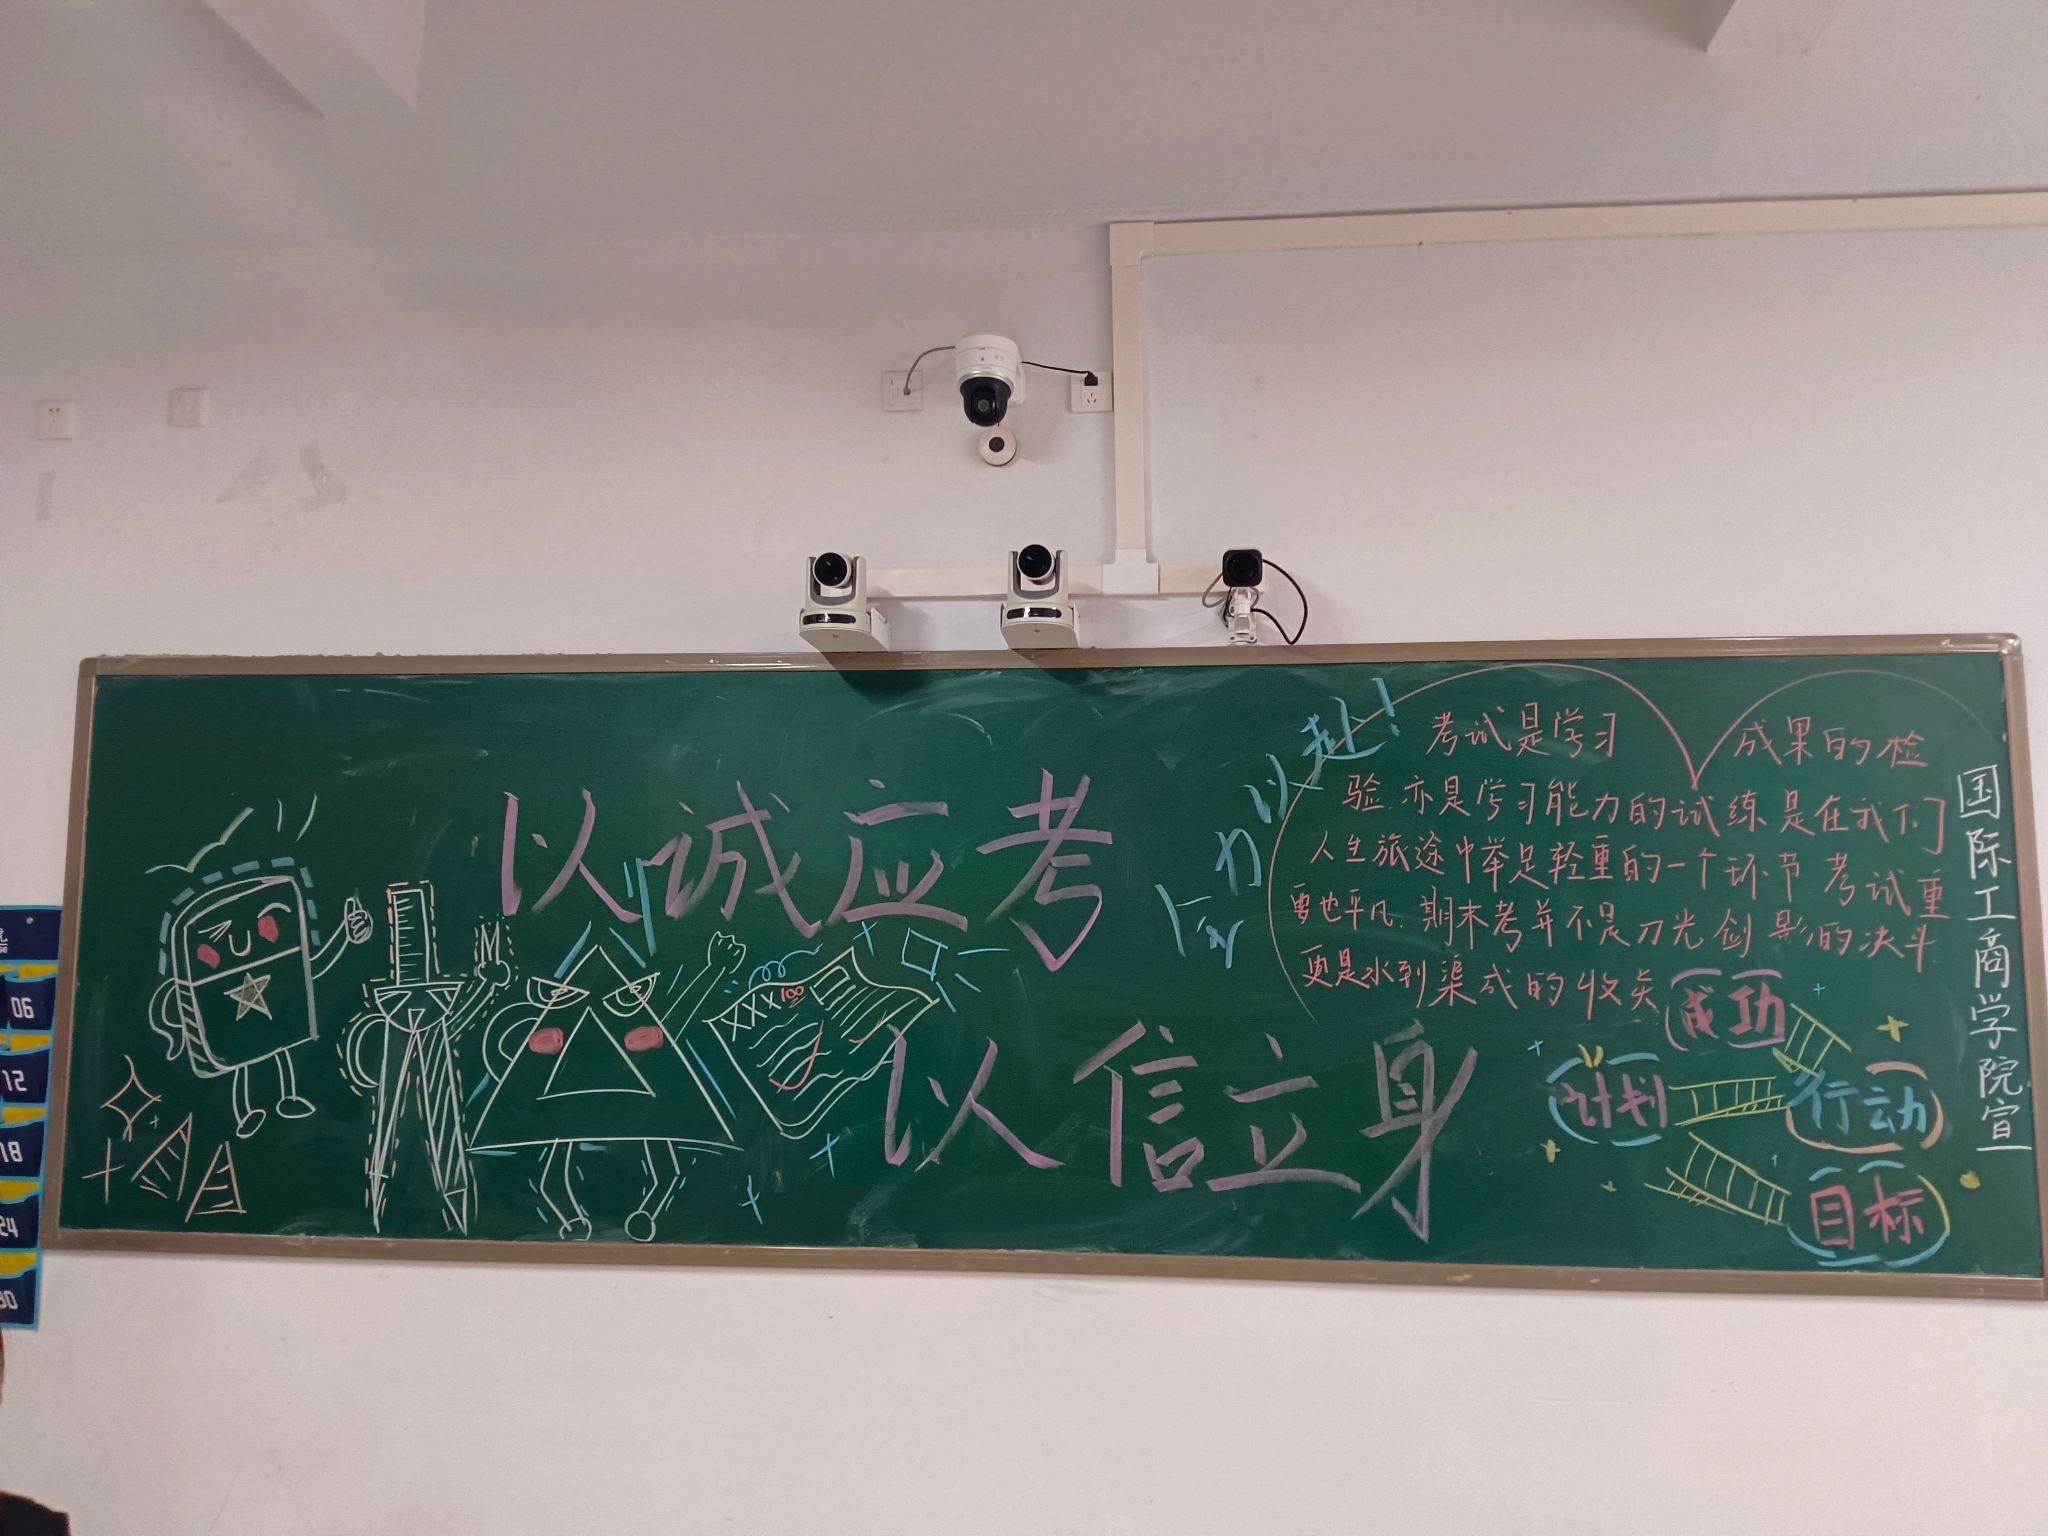 以诚应考
以信立身
全力以赴!
考试是学习 成果的检
验.亦是学习能力的试练是在我们
人生旅途中举足轻重的一个环节 考试重
要也平凡.期末考并不是刀光剑影的决斗
更是水到渠成的收关
成功
计划
行动
目标
国际工商学院宣
XXX100
06
12
18
24
30